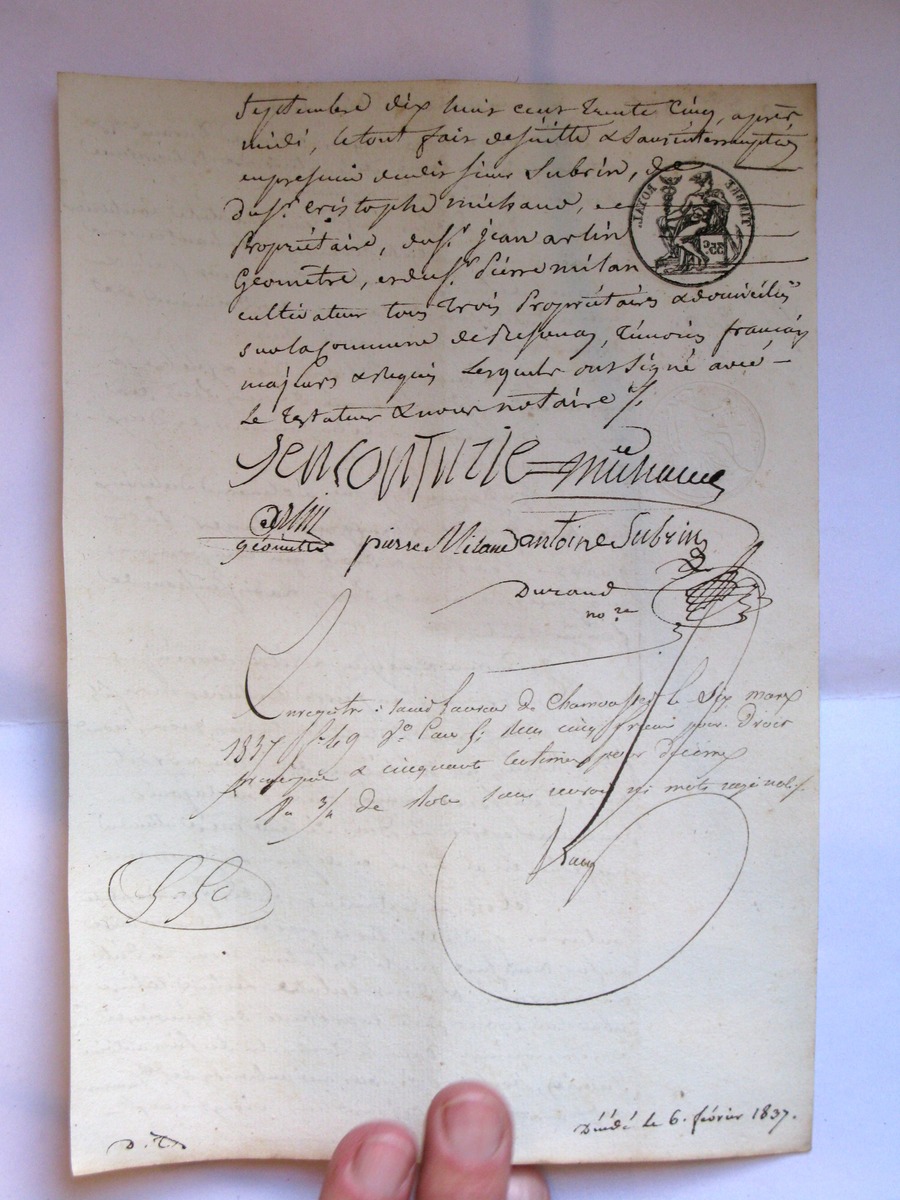 Septembre dix huit cent trente cinq, après
midi, le tout fait de suitte & sans interruption
en presence dudit sieur Subrin, de
du Sr. Cristophe michaud,
Propriétaire, du Sr. jean arlin
Géomètre, et du Sr. Pierre milan
cultivateur tous trois Propriétaires & domiciliés
sur la commune de témoins français
majeurs & requis lesquels ont signé avec
le Testateur & nous notaire ./.
michaud
arlin
géomètre pierre Milan antoine Subrin
Durand
nore
TIMBRE ROYAL
35c
Enregistré à saint Laurent de Chamousset le six mars
1837 fo 49 Vo Case reçu cinq francs pour Droit
principal & cinquante centimes pour Décime
de
D.T.
Décédé le 6. février 1837.